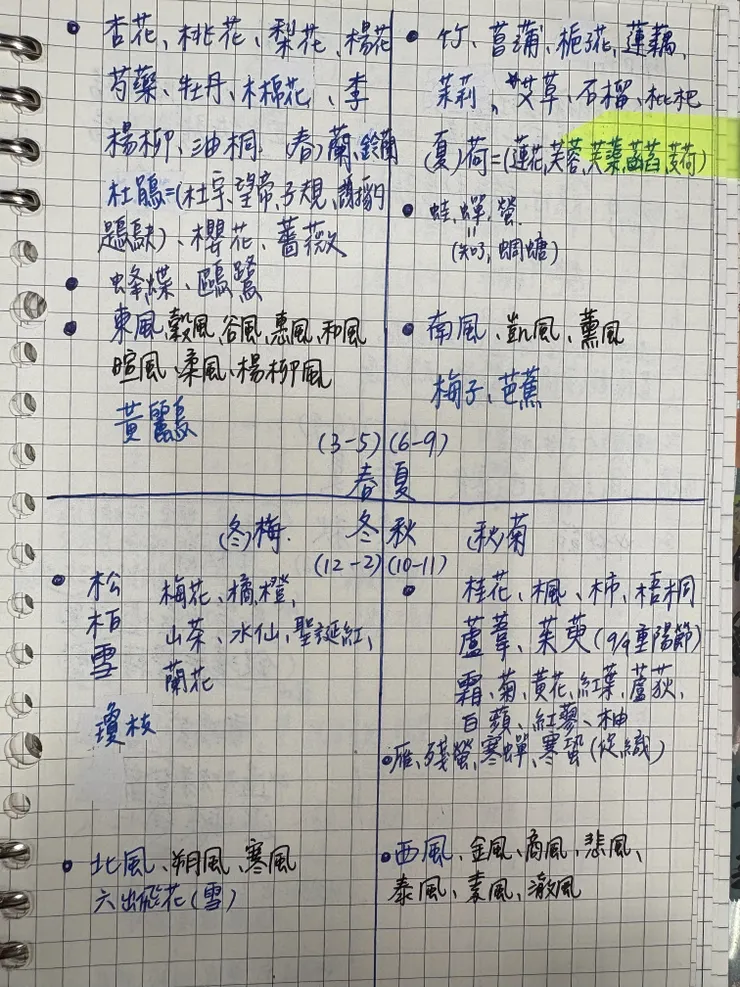 杏花、桃花、梨花、楊花
芍藥、牡丹、木棉花、李
楊柳、油桐、(春)蘭、鈴蘭
杜鵑=(杜宇、望帝、子規、謝豹
鶗鴃)、櫻花、薔薇
蜂蝶、鷗鷺
東風、穀風、谷風、惠風、和風
暄風、柔風、楊柳風
黃鸝鳥
(3-5)
春
竹、菖蒲、梔子花、蓮藕、
茉莉、艾草、石榴、枇杷
(夏)荷=(蓮花、芙蓉、芙蕖、菡萏、芰荷)
蛙、蟬、螢
(知了, 蜩螗)
南風、凱風、薰風
梅子、芭蕉
(6-9)
夏
(冬)梅
冬
(12-2)
松
柏
雪
梅花、橘、橙、
山茶、水仙、聖誕紅、
蘭花
瓊枝
北風、朔風、寒風
六出飛花(雪)
秋
(秋)菊
(10-11)
桂花、楓、柿、梧桐
蘆葦、茱萸(9/9重陽節)
霜、菊、黃花、紅葉、蘆荻、
白蘋、紅蓼、柚
雁、殘螢、寒蟬、寒蛩(促織)
西風、金風、商風、悲風、
泰風、素風、激風